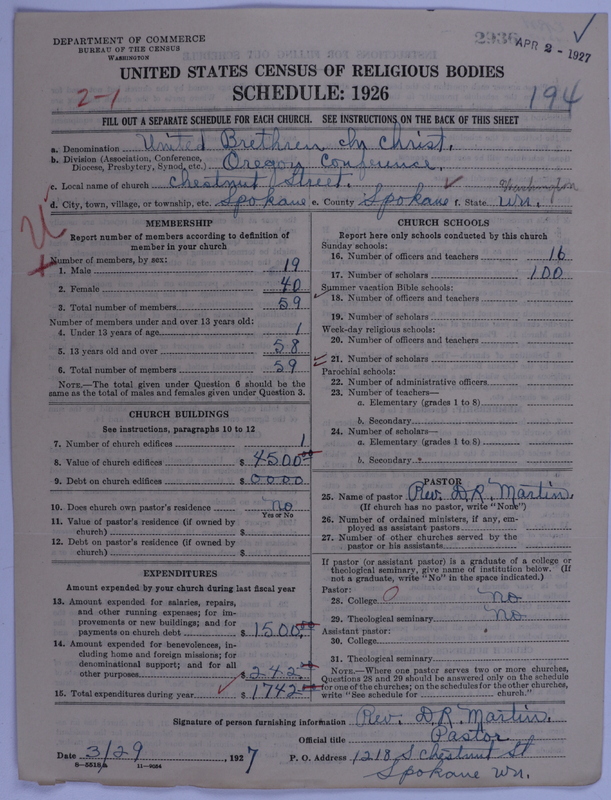 DEPARTMENT OF COMMERCE
BUREAU OF THE CENSUS
WASHINGTON
2936
APR 2 - 1927
UNITED STATES CENSUS OF RELIGIOUS BODIES
SCHEDULE: 1926
2-1
194
FILL OUT A SEPARATE SCHEDULE FOR EACH CHURCH. SEE INSTRUCTIONS ON THE BACK OF THIS SHEET
a. Denomination United Brethren in Christ.
b. Division (Association, Conference, Diocese, Presbytery, Synod, etc.) Oregon Conference.
c. Local name of church Chestnut Street.
Washington
d. City, town, village, or township, etc. Spokane e. County Spokane f. State Wn.
MEMBERSHIP
Report number of members according to definition of
member in your church
Number of members, by sex:
1. Male 19
2. Female 40
3. Total number of members 59
Number of members under and over 13 years old:
4. Under 13 years of age 1
5. 13 years old and over 58
6. Total number of members 59
NOTE.—The total given under Question 6 should be the
same as the total of males and females given under Question 3.
CHURCH BUILDINGS
See instructions, paragraphs 10 to 12
7. Number of church edifices 1
8. Value of church edifices $ 4500.00
9. Debt on church edifices $ 0000
10. Does church own pastor's residence no
Yes or No
11. Value of pastor's residence (if owned by
church) $
12. Debt on pastor's residence (if owned by
church) $
EXPENDITURES
Amount expended by your church during last fiscal year
13. Amount expended for salaries, repairs,
and other running expenses; for im-
provements or new buildings; and for
payments on church debt $ 1500.00
14. Amount expended for benevolences, in-
cluding home and foreign missions; for
denominational support; and for all
other purposes $ 242
15. Total expenditures during year $ 1742
CHURCH SCHOOLS
Report here only schools conducted by this church
Sunday schools:
16. Number of officers and teachers 16
17. Number of scholars 100
Summer vacation Bible schools:
18. Number of officers and teachers
19. Number of scholars
Week-day religious schools:
20. Number of officers and teachers
21. Number of scholars
Parochial schools:
22. Number of administrative officers
23. Number of teachers—
a. Elementary (grades 1 to 8)
b. Secondary
24. Number of scholars—
a. Elementary (grades 1 to 8)
b. Secondary
PASTOR
25. Name of pastor Rev. D.R. Martin.
(If church has no pastor, write "None")
26. Number of ordained ministers, if any, em-
ployed as assistant pastors
27. Number of other churches served by the
pastor or his assistants
If pastor (or assistant pastor) is a graduate of a college or
theological seminary, give name of institution below. (If
not a graduate, write "No" in the space indicated.)
Pastor:
28. College 0 no
29. Theological seminary no
Assistant pastor:
30. College
31. Theological seminary
NOTE.—Where one pastor serves two or more churches,
Questions 28 and 29 should be answered only on the schedule
for one of the churches; on the schedules for the other churches,
write "See schedule for church."
Signature of person furnishing information Rev. D.R. Martin.
Official title Pastor
Date 3/29, 1927 P. O. Address 1218 S Chestnut St
8—5518a 11—9054
Spokane Wn.